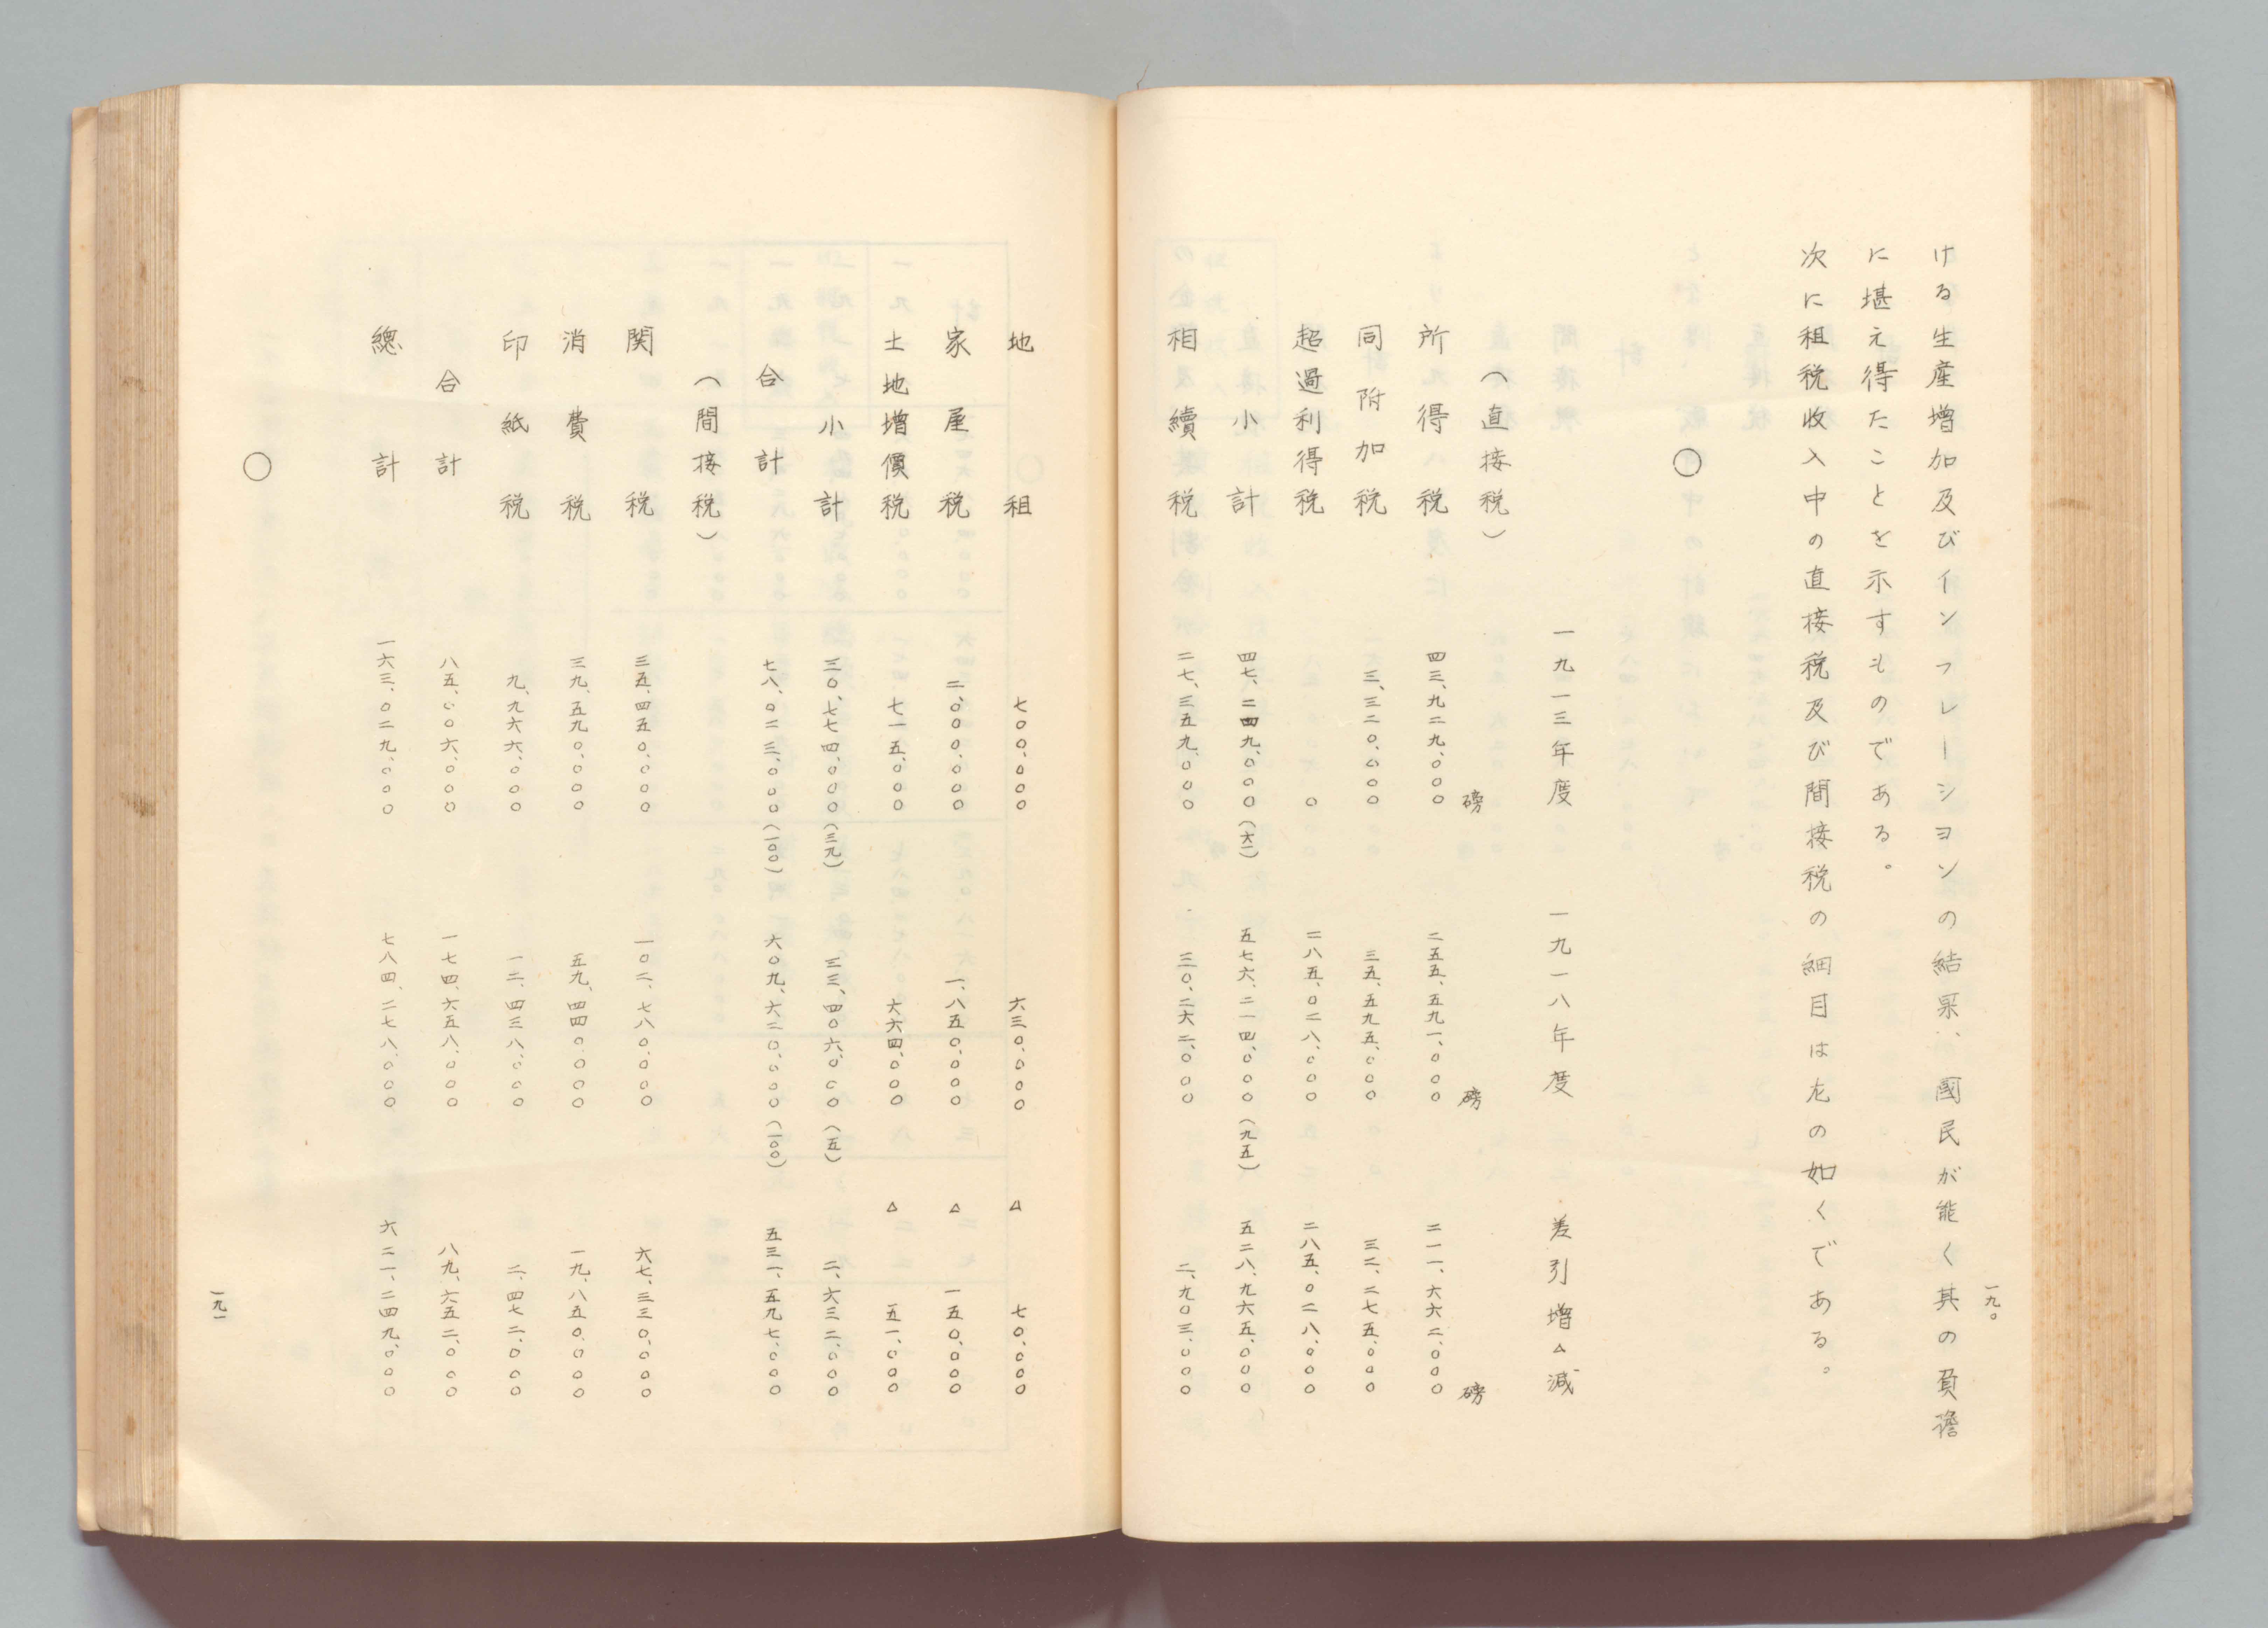 一九〇
ける生産増加及びインフレーションの結果、國民が能く其の負擔
に堪え得たことを示すものである。
次に租税收入中の直接税及び間接税の細目は左の如くである。
○
一九一三年度 一九一八年度 差引増△減
(直接税) 磅 磅 磅
所得税 四三、九二九、〇〇〇 二五五、五九一、〇〇〇 二一一、六六二、〇〇〇
同附加税 三、三二〇、〇〇〇 三五、五九五、〇〇〇 三二、二七五、〇〇〇
超過利得税 〇 二八五、〇二八、〇〇〇 二八五、〇二八、〇〇〇
小計 四七、二四九、〇〇〇(六一) 五七六、二一四、〇〇〇(九五) 五二八、九六五、〇〇〇
相續税 二七、三五九、〇〇〇 三〇、二六二、〇〇〇 二、九〇三、〇〇〇
地租 七〇〇、〇〇〇 六三〇、〇〇〇 △ 七〇、〇〇〇
家屋税 二、〇〇〇、〇〇〇 一、八五〇、〇〇〇 △ 一五〇、〇〇〇
土地増價税 七一五、〇〇〇 六六四、〇〇〇 △ 五一、〇〇〇
小計 三〇、七七四、〇〇〇(三九) 三三、四〇六、〇〇〇(五) 二、六三二、〇〇〇
合計 七八、〇二三、〇〇〇(一〇〇) 六〇九、六二〇、〇〇〇(一〇〇) 五三一、五九七、〇〇〇
(間接税)
関税 三五、四五〇、〇〇〇 一〇二、七八〇、〇〇〇 六七、三三〇、〇〇〇
消費税 三九、五九〇、〇〇〇 五九、四四〇、〇〇〇 一九、八五〇、〇〇〇
印紙税 九、九六六、〇〇〇 一二、四三八、〇〇〇 二、四七二、〇〇〇
合計 八五、〇〇六、〇〇〇 一七四、六五八、〇〇〇 八九、六五二、〇〇〇
總計 一六三、〇二九、〇〇〇 七八四、二七八、〇〇〇 六二一、二四九、〇〇〇
○
一九一